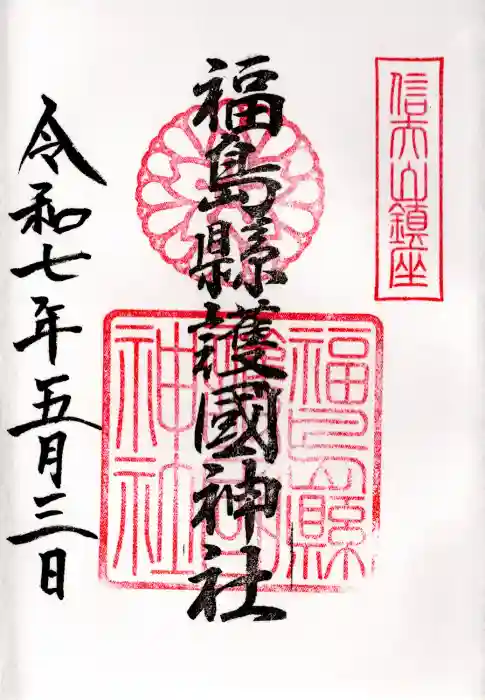 信夫山鎮座
福島縣護國神社
福島縣護國神社
令和七年五月三日